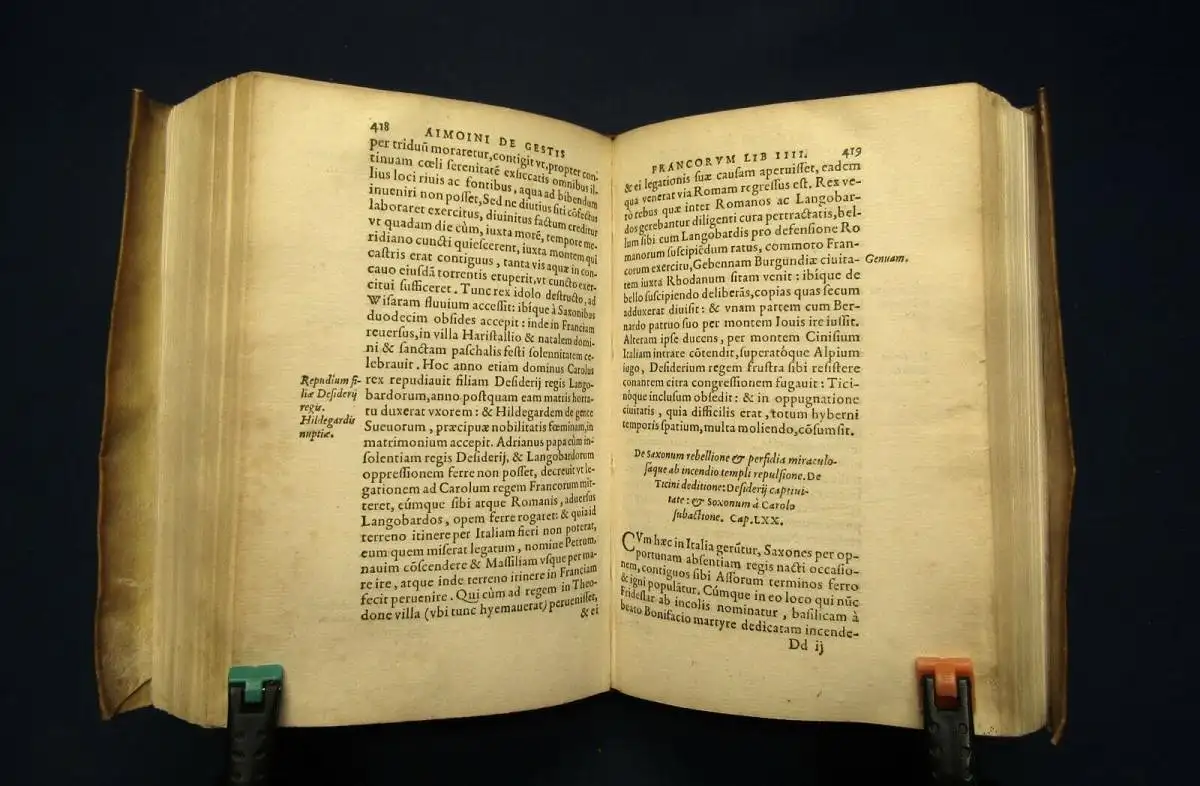 418 AIMOINI DE GESTIS
per triduũ moraretur, contigit vt, propter con-
tinuam cœli serenitatẽ exsiccatis omnibus il-
lius loci riuis ac fontibus, aqua ad bibendum
inueniri non posset, Sed ne diutius siti cõfectus
laboraret exercitus, diuinitus factum creditur
vt quadam die cùm, iuxta morẽ, tempore me-
ridiano cuncti quiescerent, iuxta montem qui
castris erat contiguus, tanta vis aquæ in con-
cauo eiusdã torrentis eruperit, vt cuncto exer-
citui sufficeret. Tunc rex idolo destructo, ad
Wisaram fluuium accessit: ibique à Saxonibus
duodecim obsides accepit: inde in Franciam
reuersus, in villa Haristallio & natalem domi-
ni & sanctam paschalis festi solennitatem ce-
lebrauit. Hoc anno etiam dominus Carolus
Repudium fi-
liæ Desiderij
regis.
Hildegardis
nuptiæ.
rex repudiauit filiam Desiderij regis Lango-
bardorum, anno postquam eam matris horta-
tu duxerat vxorem: & Hildegardem de gente
Sueuorum, præcipuæ nobilitatis fœminam, in
matrimonium accepit. Adrianus papa cùm in-
solentiam regis Desiderij, & Langobardorum
oppressionem ferre non posset, decreuit vt le-
gationem ad Carolum regem Francorum mit-
teret, cúmque sibi atque Romanis, aduersus
Langobardos, opem ferre rogaret: & quia id
terreno itinere per Italiam fieri non poterat,
eum quem miserat legatum, nomine Petrum,
nauim cõscendere & Massiliam vsque per ma-
re ire, atque inde terreno itinere in Franciam
fecit peruenire. Qui cùm ad regem in Theo-
done villa (vbi tunc hyemauerat) peruenisset,
& ei
FRANCORVM LIB IIII. 419
& ei legationis suæ causam aperuisset, eadem
qua venerat via Romam regressus est. Rex ve-
rò rebus quæ inter Romanos ac Langobar-
dos gerebantur diligenti cura pertractatis, bel-
lum sibi cum Langobardis pro defensione Ro
manorum suscipiẽdum ratus, commoto Fran-
corum exercitu, Gebennam Burgundiæ ciuita-
Genuam.
tem iuxta Rhodanum sitam venit: ibique de
bello suscipiendo deliberãs, copias quas secum
adduxerat diuisit: & vnam partem cum Ber-
nardo patruo suo per montem Iouis ire iussit.
Alteram ipse ducens, per montem Cinisium
Italiam intrare cõtendit, superatóque Alpium
iugo, Desiderium regem frustra sibi resistere
conantem citra congressionem fugauit: Tici-
nóque inclusum obsedit: & in oppugnatione
ciuitatis, quia difficilis erat, totum hyberni
temporis spatium, multa moliendo, cõsumsit.
De Saxonum rebellione & perfidia miraculo-
sáque ab incendio templi repulsione. De
Ticini deditione: Desiderij captiui-
tate: & Soxonum à Carolo
subactione. Cap. LXX.
CVm hæc in Italia gerũtur, Saxones per op-
portunam absentiam regis nacti occasio-
nem, contiguos sibi Assorum terminos ferro
& igni populãtur. Cúmque in eo loco qui nũc
Frideslar ab incolis nominatur, basilicam à
beato Bonifacio martyre dedicatam incende-
Dd ij